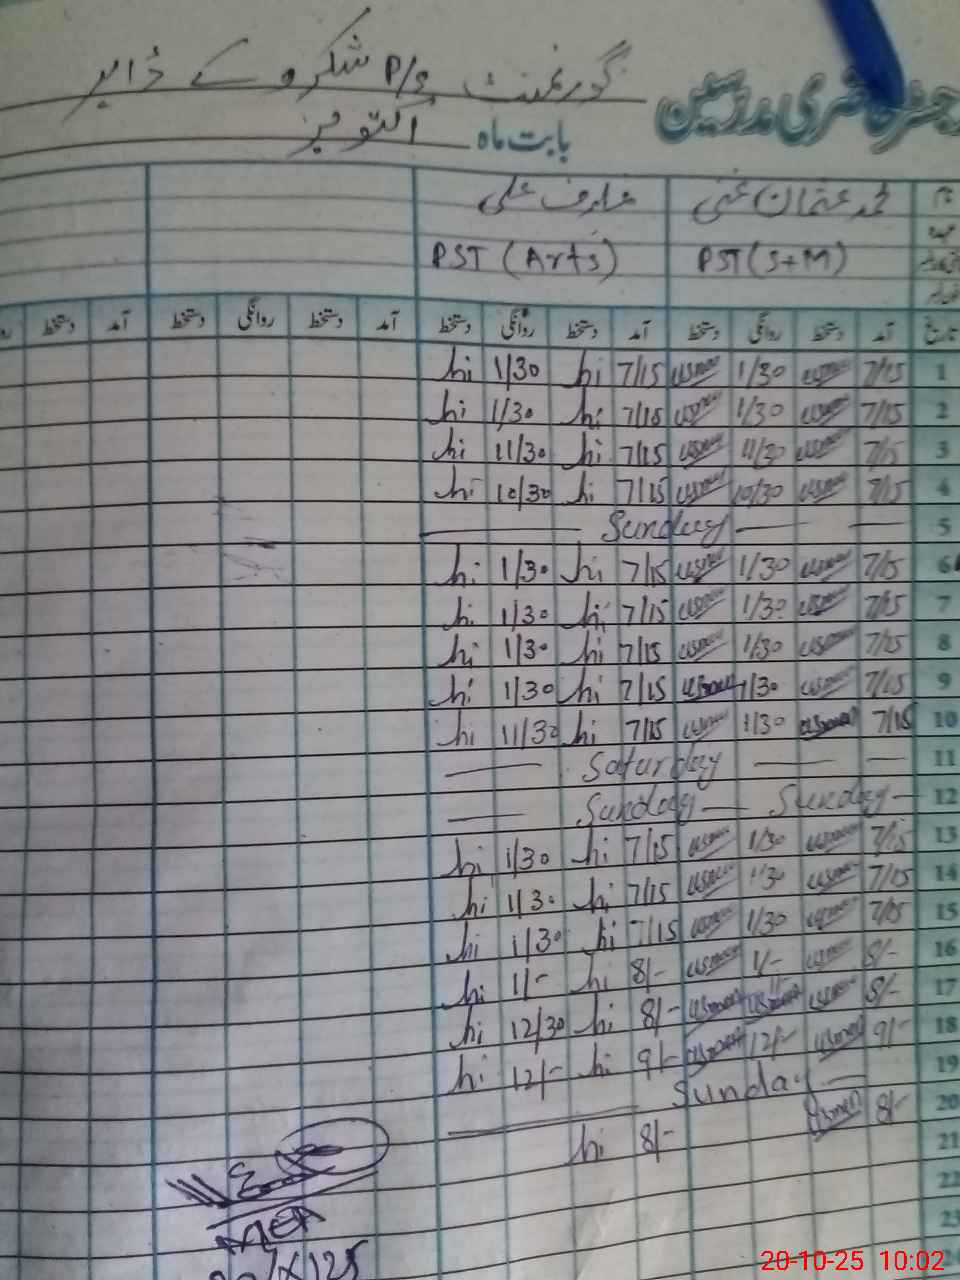 رجسٹر حاضری مدرسین گورنمنٹ P/S شکرو کے ڈاہر
بابت ماہ اکتوبر
نام محمد عثمان غنی عارف علی
عہدہ PST (S+M) PST (Arts)
تاریخ آمد دستخط روانگی دستخط آمد دستخط روانگی دستخط آمد دستخط روانگی دستخط آمد دستخط
1 7/15 usman 1/30 usman 7/15 hi 1/30 hi
2 7/15 usman 1/30 usman 7/15 hi 1/30 hi
3 7/15 usman 11/30 usman 7/15 hi 11/30 hi
4 7/15 usman 10/30 usman 7/15 hi 10/30 hi
5 — Sunday —
6 7/15 usman 1/30 usman 7/15 hi 1/30 hi
7 7/15 usman 1/30 usman 7/15 hi 1/30 hi
8 7/15 usman 1/30 usman 7/15 hi 1/30 hi
9 7/15 usman 1/30 usman 7/15 hi 1/30 hi
10 7/15 usman 1/30 usman 7/15 hi 11/30 hi
11 — Saturday —
12 — Sunday — Sunday —
13 7/15 usman 1/30 usman 7/15 hi 1/30 hi
14 7/15 usman 1/30 usman 7/15 hi 1/30 hi
15 7/15 usman 1/30 usman 7/15 hi 1/30 hi
16 8/- usman 1/- usman 8/- hi 1/- hi
17 8/- usman usman 8/- hi 12/30 hi
18 9/- usman 12/- usman 9/- hi 12/- hi
19 — Sunday —
20 8/- usman 8/- hi
21
22
23
MEA
20/X/25
20-10-25 10:02